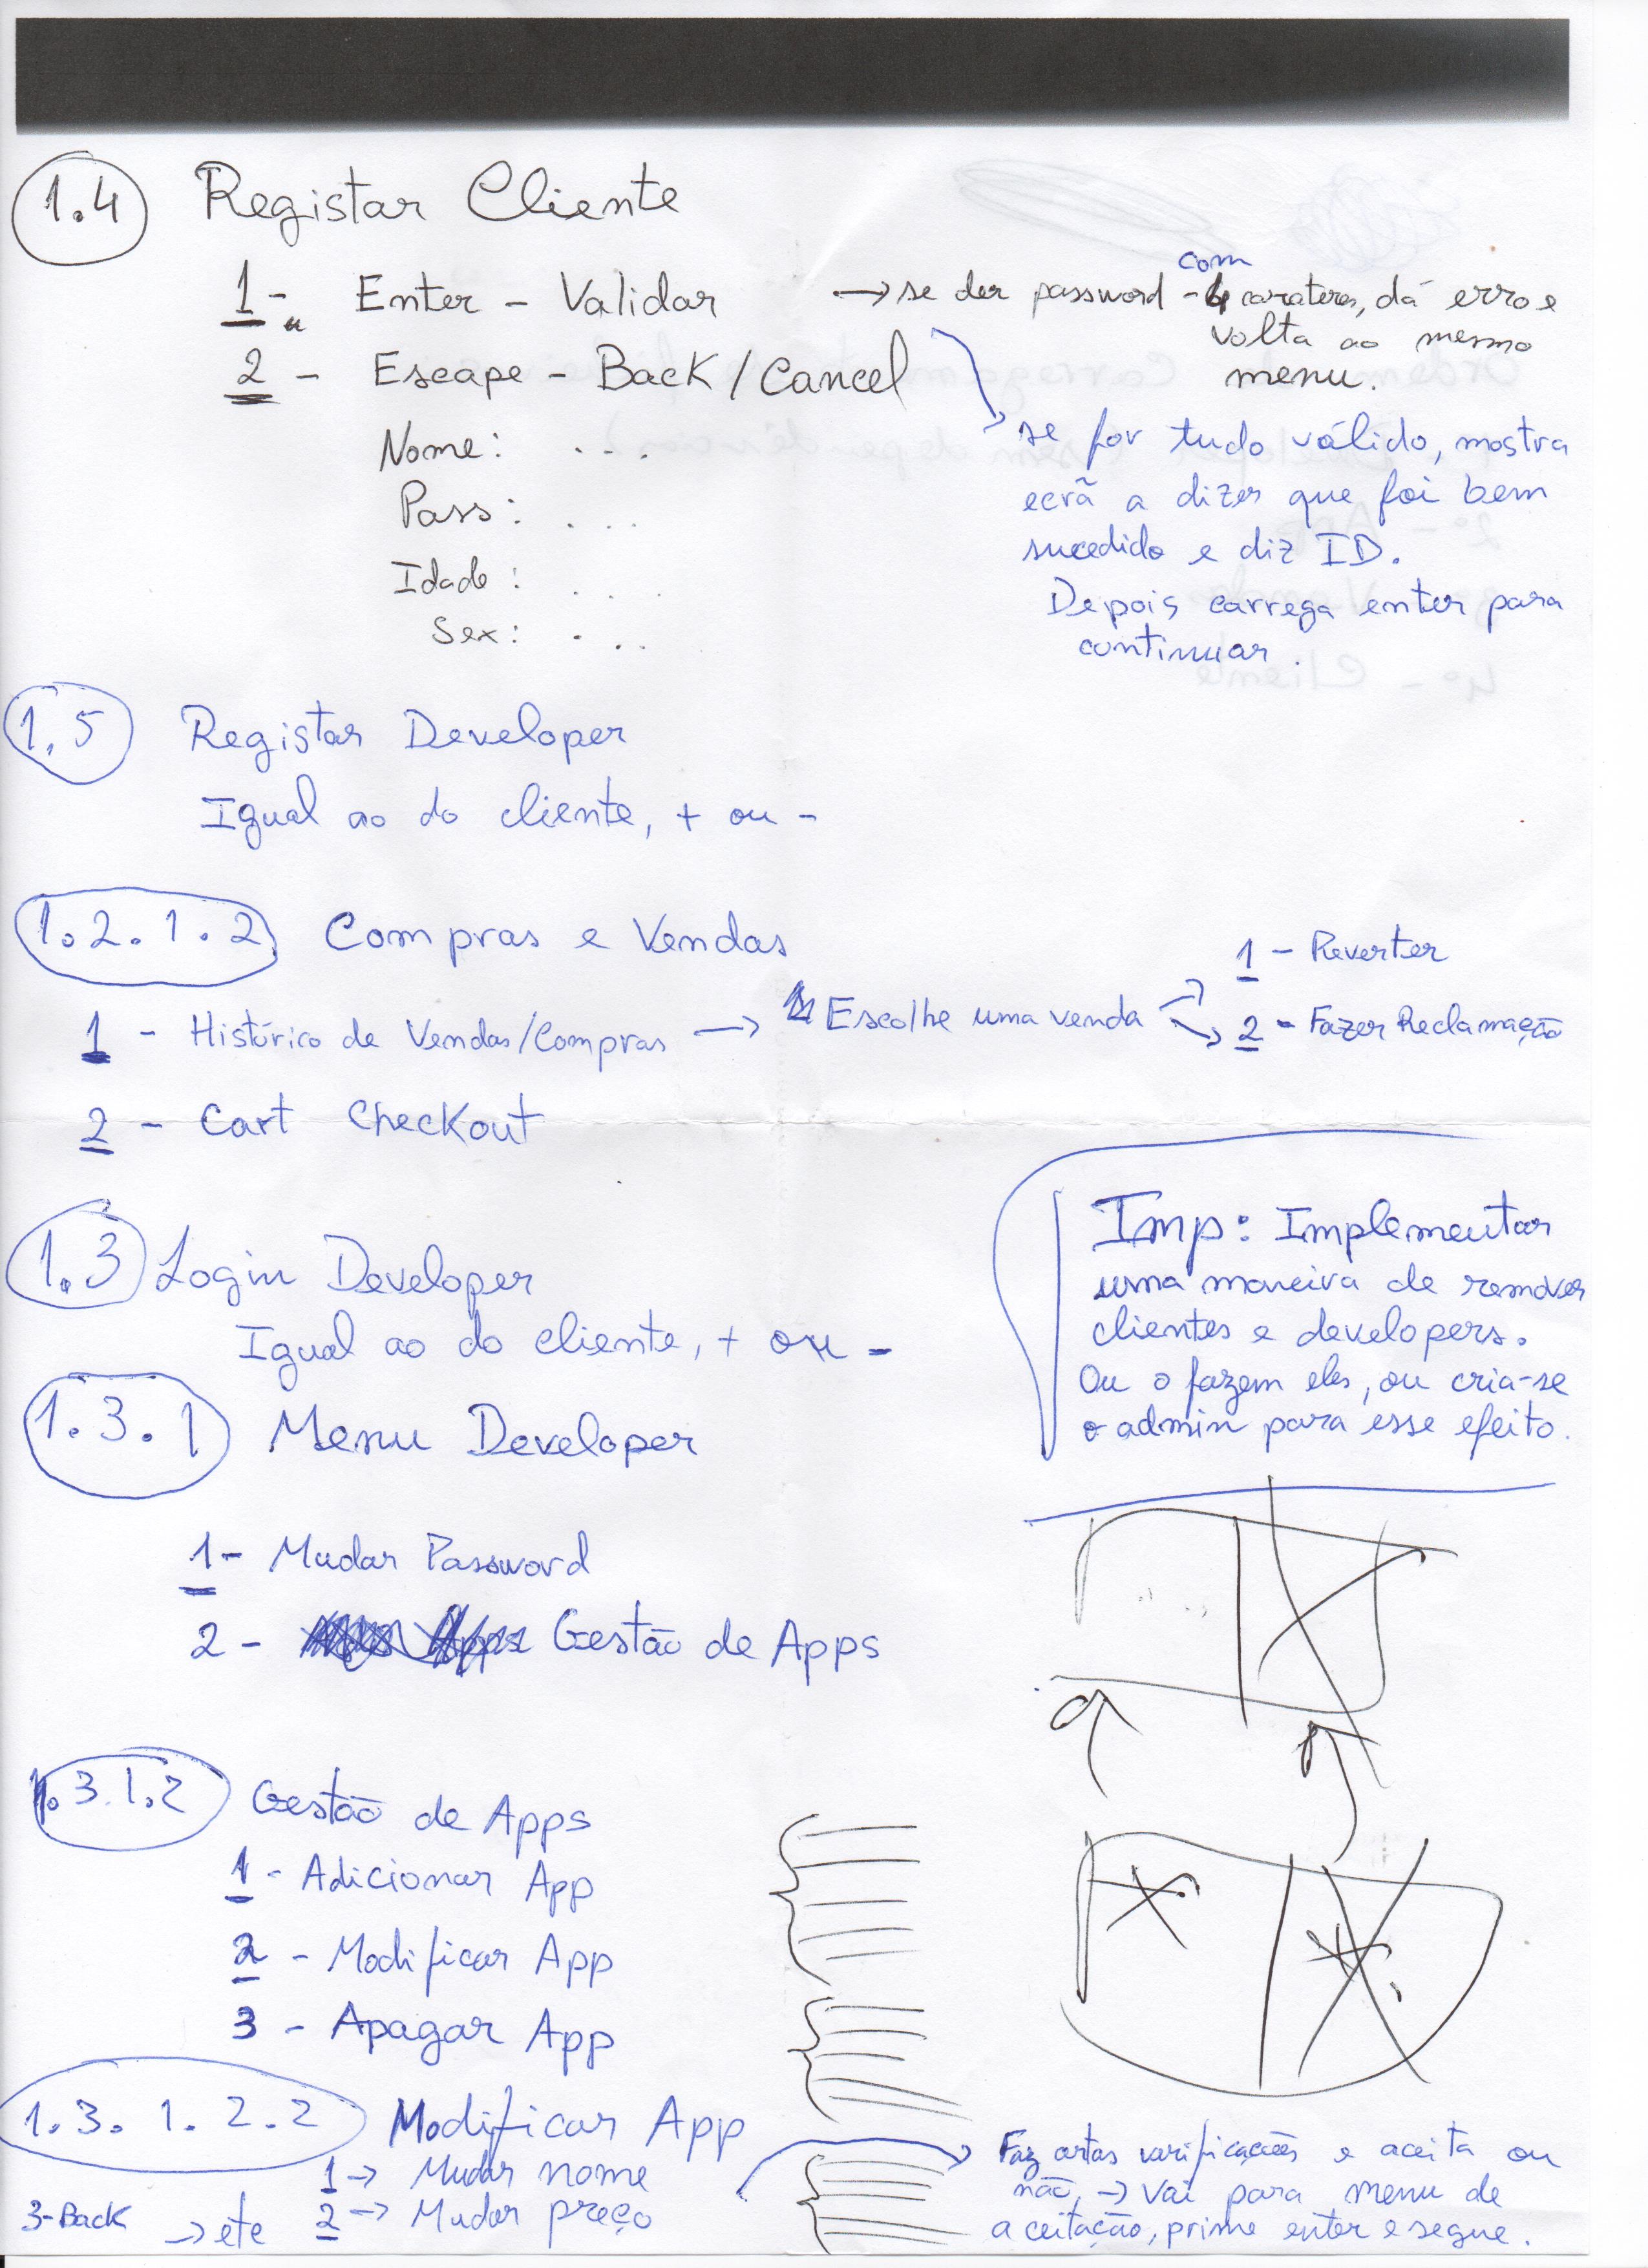 1.4 Registar Cliente
1 - Enter - Validar
→ se der password com -4 carateres, dá erro e
volta ao mesmo
menu.
2 - Escape - Back / Cancel
Nome: ...
Pass: ...
Idade: ...
Sex: ...
se for tudo válido, mostra
ecrã a dizer que foi bem
sucedido e diz ID.
Depois carrega enter para
continuar.
1.5 Registar Developer
Igual ao do cliente, + ou -
1.2.1.2 Compras e Vendas
1 - Histórico de Vendas/Compras → Escolhe uma venda
1 - Reverter
2 - Fazer Reclamação
2 - Cart Checkout
1.3 Login Developer
Igual ao do cliente, + ou -
Imp: Implementar
uma maneira de remover
clientes e developers.
Ou o fazem eles, ou cria-se
o admin para esse efeito.
1.3.1 Menu Developer
1 - Mudar Password
2 - Gestão de Apps
1.3.1.2 Gestão de Apps
1 - Adicionar App
2 - Modificar App
3 - Apagar App
1.3.1.2.2 Modificar App
1 → Mudar nome
2 → Mudar preço
3-Back → etc
Faz certas verificações e aceita ou
não, → Vai para menu de
aceitação, prime enter e segue.